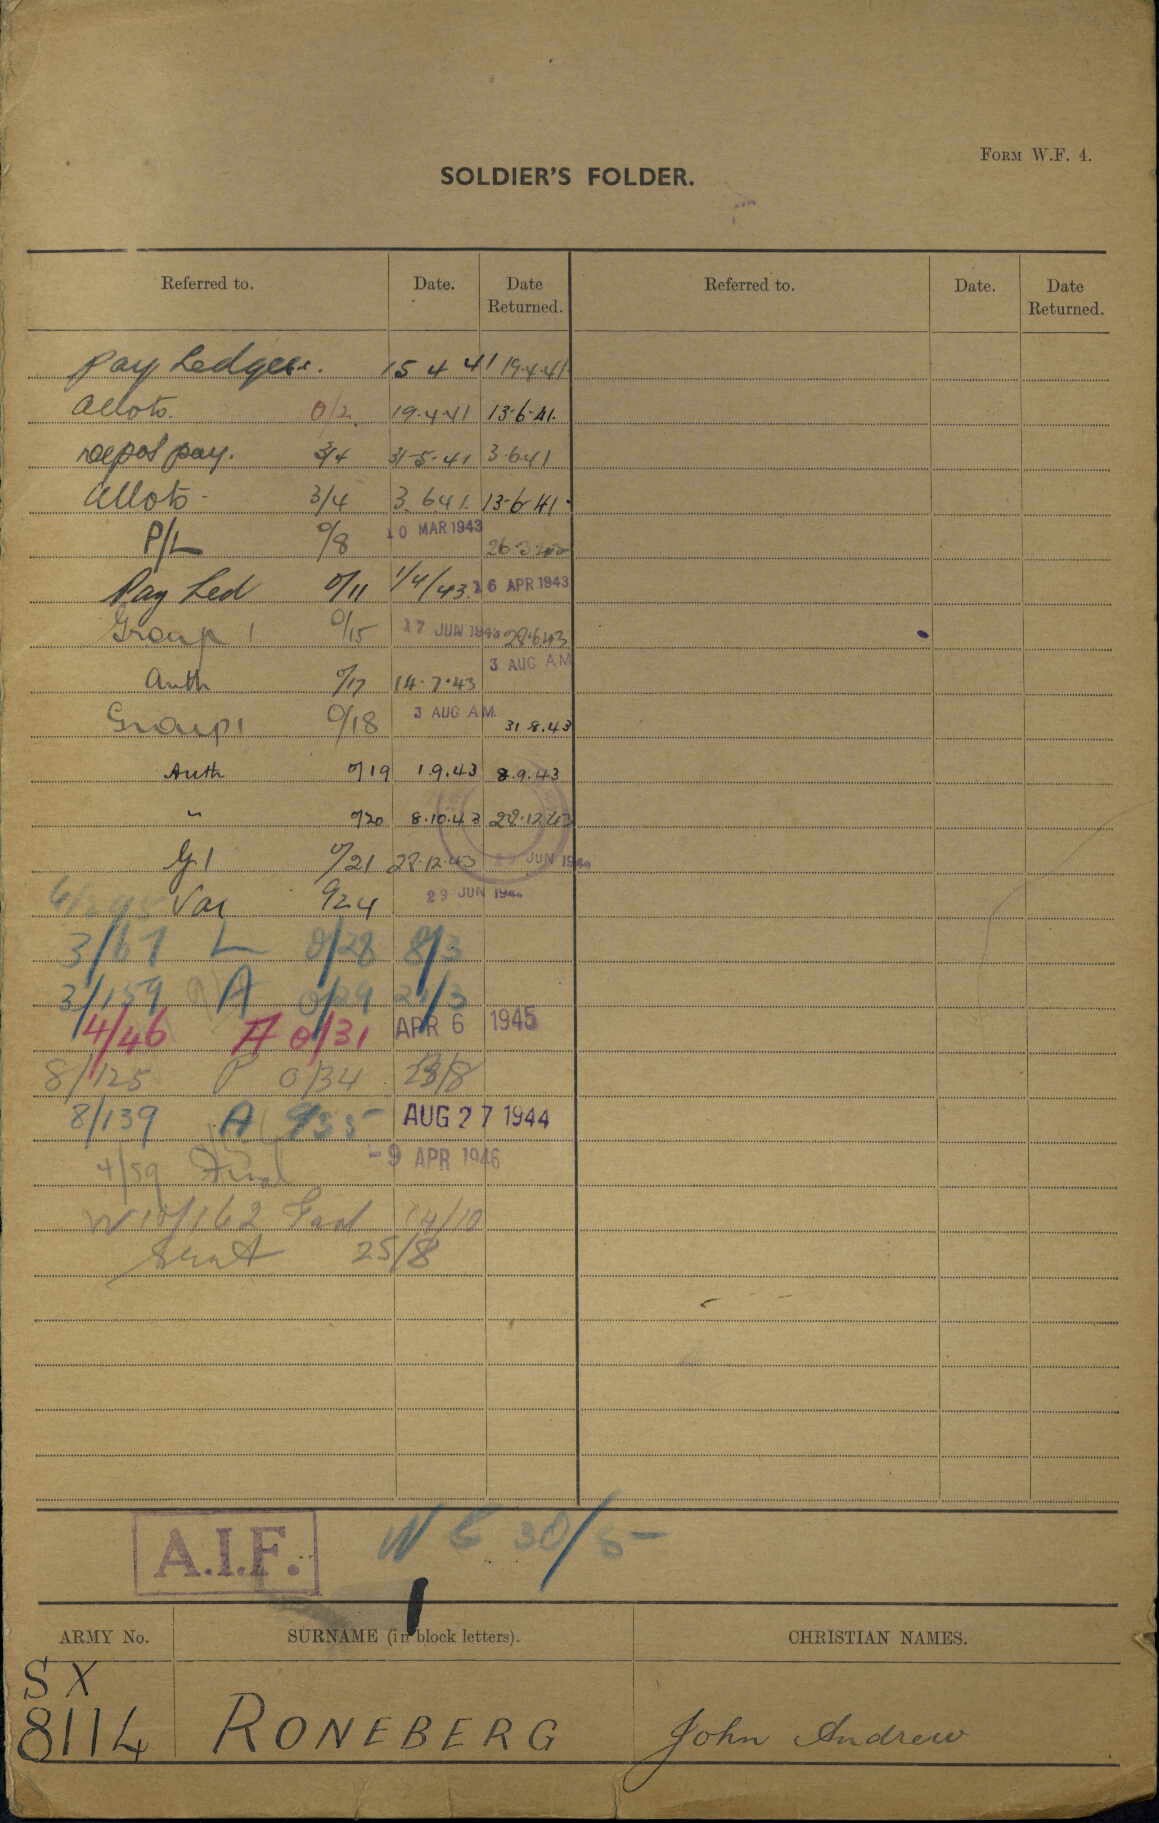 FORM W.F. 4.
SOLDIER'S FOLDER.
Referred to. Date. Date Returned. Referred to. Date. Date Returned.
Pay Ledger. 15 4 41 19.4.41
Allots. 0/2 19.4.41 13.6.41.
Depos pay. 3/4 31-5-41 3.6.41
Allots - 3/4 3.6.41. 13-6-41.
P/L 0/8 10 MAR 1943
Pay Led 0/11 1/4/43. 16 APR 1943
Group 1 0/15 17 JUN 1943 28.6.43
Auth 0/17 14.7.43 3 AUG A.M.
Group 1 0/18 3 AUG A.M. 31.8.43
Auth 0/19 1.9.43 8.9.43
" 0/20 8.10.43 28.12.43
G1 0/21 28.12.43 29 JUN 1944
Var 0/24 29 JUN 1944
3/67 L 0/28 8/3
3/159 A 0/29 /3
4/46 A 0/31 APR 6 1945
8/125 P 0/34 /8
8/139 A 0/35 AUG 27 1944
4/59 Final -9 APR 1946
W10/162 14/10
Sent 25/8
A.I.F. 30/5
1
ARMY No. SURNAME (in block letters). CHRISTIAN NAMES.
SX
8114 RONEBERG John Andrew